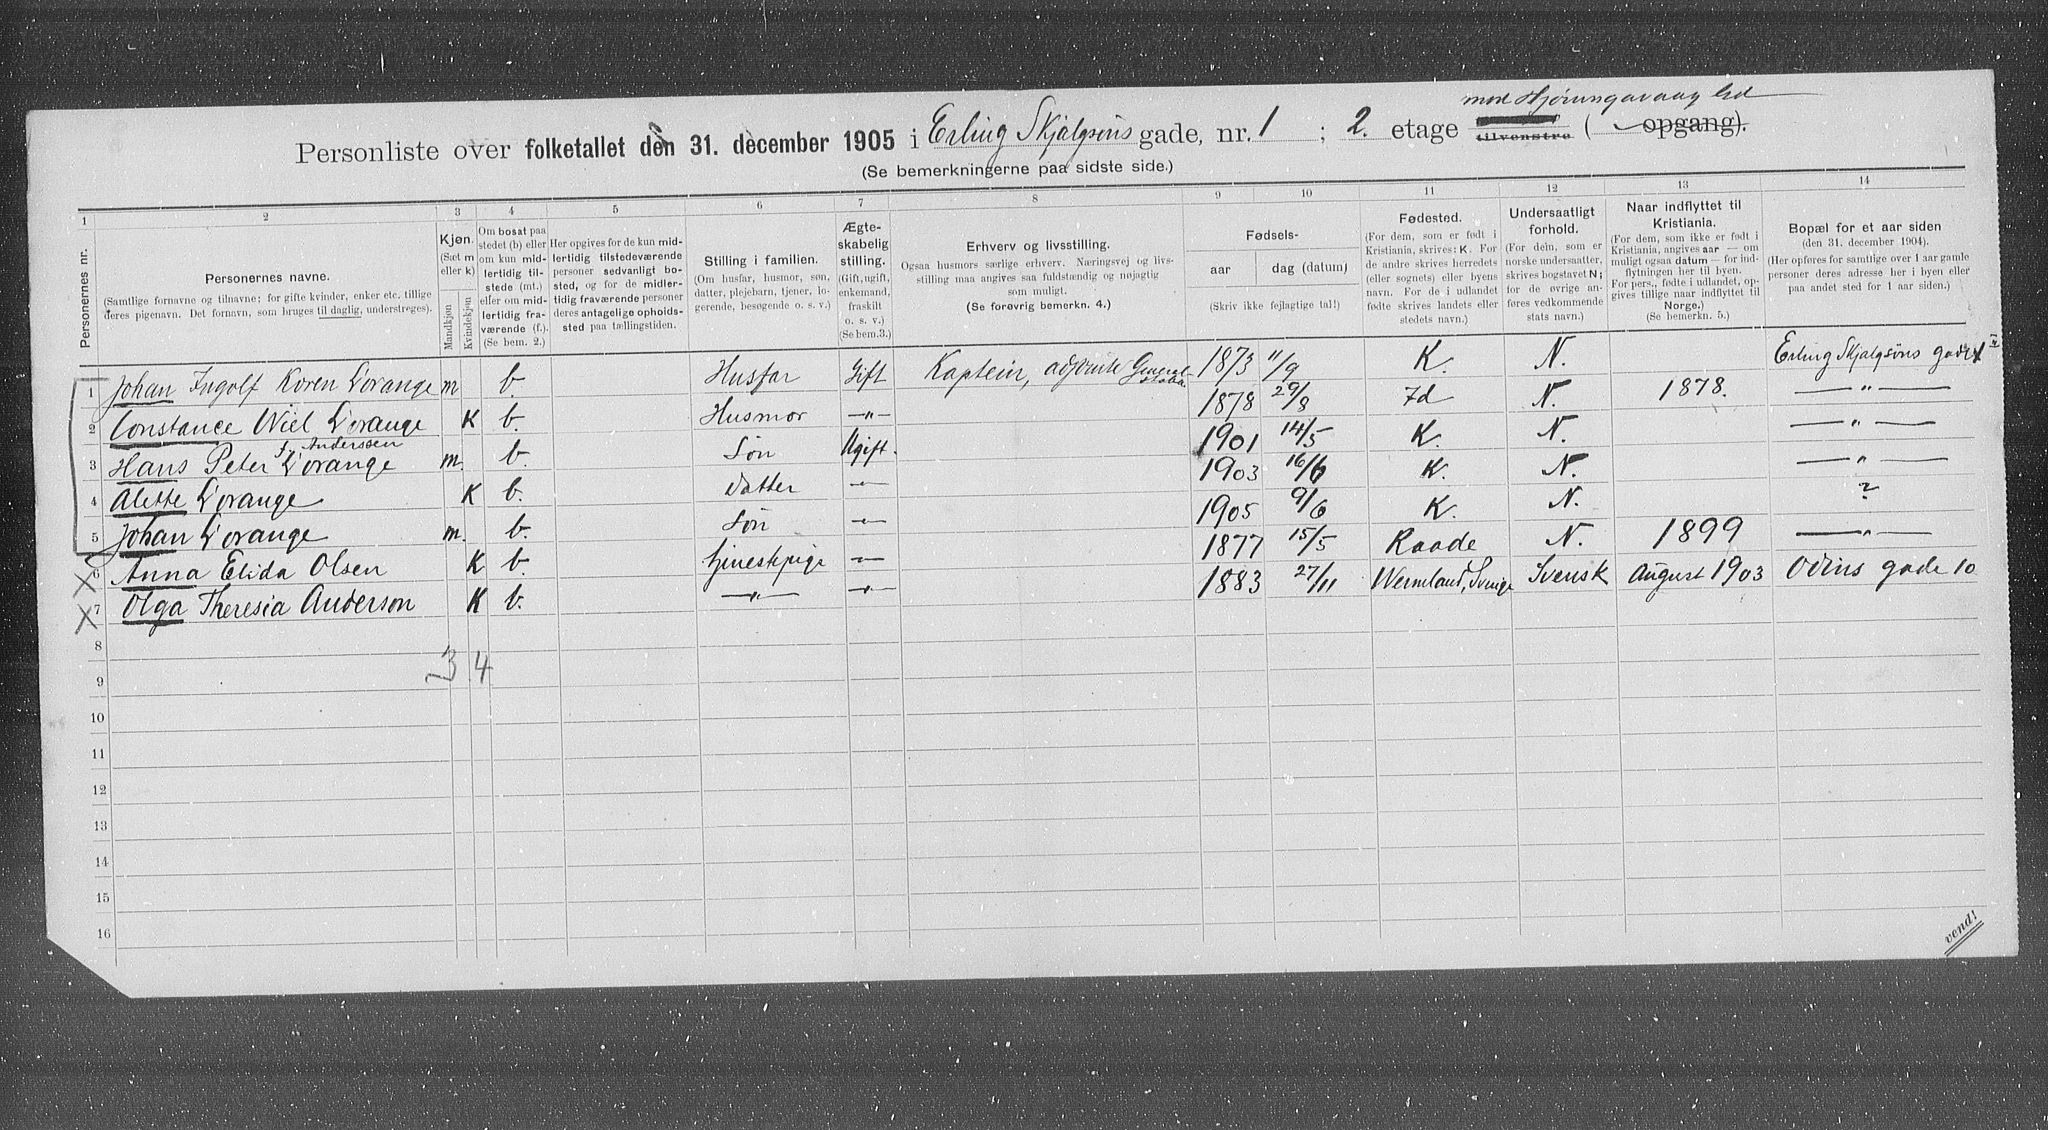 med Hjørungavaag Gd
Personliste over folketallet den 31. december 1905 i Erling Skjalgsøns gade, nr. 1 ; 2. etage tilvenstre ( opgang).
(Se bemerkningerne paa sidste side.)
1 2 3 4 5 6 7 8 9 10 11 12 13 14
Personernes nr.
Personernes navne.
(Samtlige fornavne og tilnavne; for gifte kvinder, enker etc. tillige
deres pigenavn. Det fornavn, som bruges til daglig, understreges).
Kjøn.
(Sæt m
eller k)
Mandkjøn
Kvindekjøn
Om bosat paa
stedet (b) eller
om kun mid-
lertidig til-
stede (mt.)
eller om mid-
lertidig fra-
værende (f.).
(Se bem. 2.)
Her opgives for de kun mid-
lertidig tilstedeværende
personer sedvanligt bo-
sted, og for de midler-
tidig fraværende personer
deres antagelige opholds-
sted paa tællingstiden.
Stilling i familien.
(Om husfar, husmor, søn,
datter, plejebarn, tjener, lo-
gerende, besøgende o. s. v.)
Ægte-
skabelig
stilling.
(Gift, ugift,
enkemand,
fraskilt
o. s. v.)
(Se bem.3.)
Erhverv og livsstilling.
Ogsaa husmors særlige erhverv. Næringsvej og livs-
stilling maa angives saa fuldstændig og nøjagtig
som muligt.
(Se forøvrig bemerkn. 4.)
Fødsels-
aar dag (datum)
(Skriv ikke fejlagtige tal!)
Fødested.
(For dem, som er født i
Kristiania, skrives: K. For
de andre skrives herredets
(eller sognets) eller byens
navn. For de i udlandet
fødte skrives landets eller
stedets navn.)
Undersaatligt
forhold.
(For dem, som er
norske undersaatter,
skrives bogstavet N;
for de øvrige an-
føres vedkommende
stats navn.)
Naar indflyttet til
Kristiania.
(For dem, som ikke er født i
Kristiania, angives aar — om
muligt ogsaa datum — for ind-
flytningen her til byen.
For pers., fødte i udlandet, op-
gives tillige naar indflyttet til
Norge.)
(Se bemerkn. 5.)
Bopæl for et aar siden
(den 31. december 1904).
(Her opføres for samtlige over 1 aar gamle
personer deres adresse her i byen eller
paa andet sted for 1 aar siden.)
1 Johan Ingolf Koren L'orange m b. Husfar Gift Kaptein, adjoint Generalstaben 1873 11/9 K. N. Erling Skjalgsøns gade 1 IV
2 Constance Wiel L'orange K b. Husmor —"— 1878 29/8 Fd N. 1878. —"—
f. Anderssen
3 Hans Peter L'orange m. b. Søn Ugift. 1901 14/5 K. N. —"—
4 Alette L'orange K b. Datter —"— 1903 16/6 K. N. —"—
5 Johan L'orange m. b. Søn —"— 1905 9/6 K. N. ?
6 Anna Elida Olsen K b. tjenestpige —"— 1877 15/5 Raade N. 1899 —"—
7 Olga Theresia Anderson K b. —"— —"— 1883 27/11 Wermland, Sverige Svensk August 1903 Odins gade 10
8
3 4
9
10
11
12
13
14
15
16
vend!